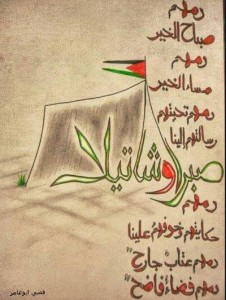 دمهم
صباح الخير
دمهم
مساء الخير
دمهم تحيتهم
رسالتهم إلينا
صبرا وشاتيلا
دمهم
حكايتهم وخوفهم علينا
دمهم عتاب جارح
دمهم فضاء فاضح
قصي ابوعامر